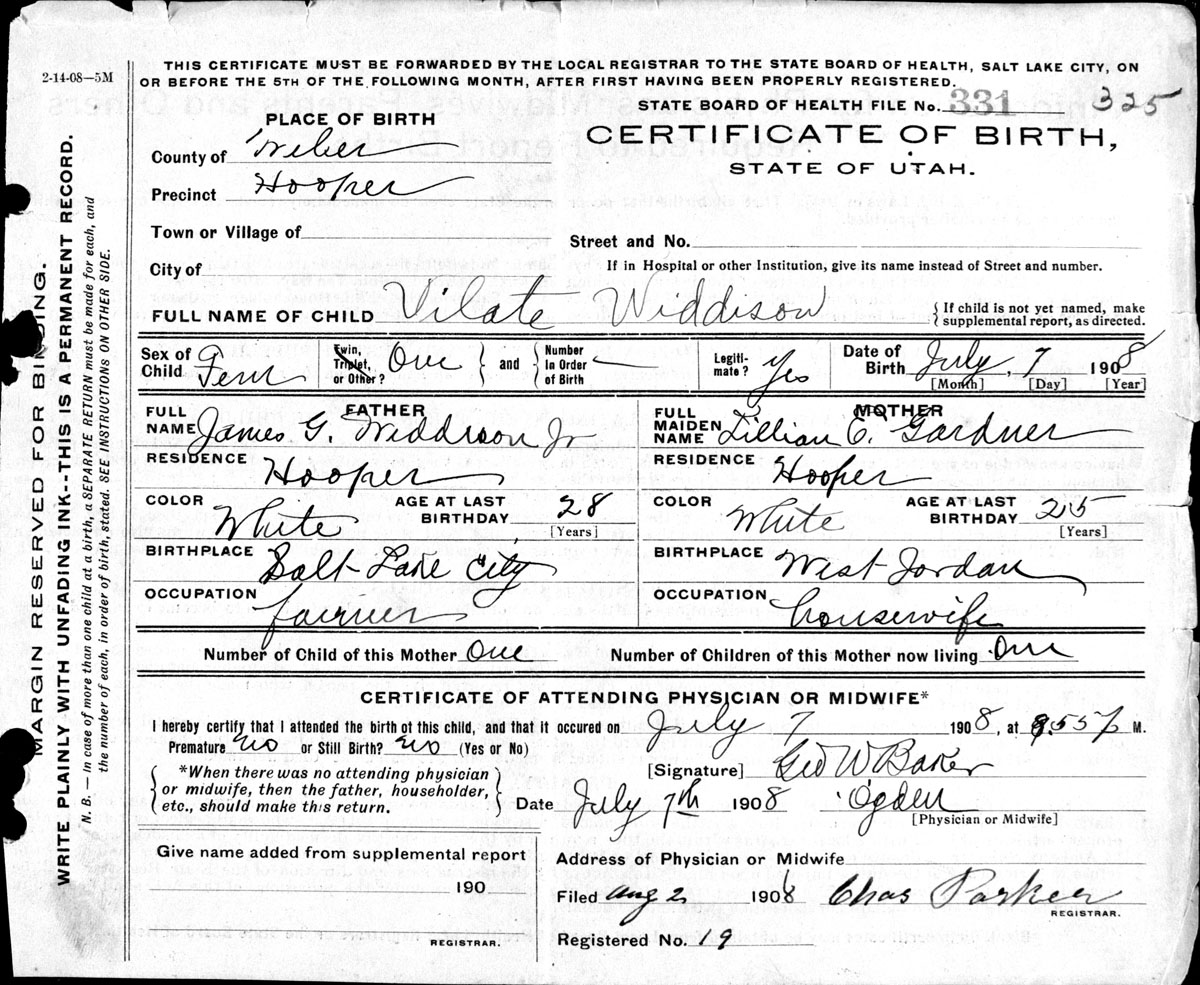 2-14-08—5M
THIS CERTIFICATE MUST BE FORWARDED BY THE LOCAL REGISTRAR TO THE STATE BOARD OF HEALTH, SALT LAKE CITY, ON
OR BEFORE THE 5TH OF THE FOLLOWING MONTH, AFTER FIRST HAVING BEEN PROPERLY REGISTERED.
STATE BOARD OF HEALTH FILE No. 331 325
PLACE OF BIRTH
CERTIFICATE OF BIRTH,
STATE OF UTAH.
County of Weber
Precinct Hooper
Town or Village of
Street and No.
City of
If in Hospital or other Institution, give its name instead of Street and number.
FULL NAME OF CHILD Vilate Widdison
{If child is not yet named, make supplemental report, as directed.
Sex of Child Fem
Twin, Triplet, or Other? One } and { Number In Order of Birth
Legiti- mate? Yes
Date of Birth July, 7 1908
[Month] [Day] [Year]
FATHER
FULL NAME James G. Widdison Jr
RESIDENCE Hooper
COLOR White AGE AT LAST BIRTHDAY 28 [Years]
BIRTHPLACE Salt Lake City
OCCUPATION farmer
MOTHER
FULL MAIDEN NAME Lillian E. Gardner
RESIDENCE Hooper
COLOR White AGE AT LAST BIRTHDAY 25 [Years]
BIRTHPLACE West Jordan
OCCUPATION housewife
Number of Child of this Mother One Number of Children of this Mother now living One
CERTIFICATE OF ATTENDING PHYSICIAN OR MIDWIFE*
I hereby certify that I attended the birth of this child, and that it occured on July 7 1908, at 9.55 p M.
Premature no or Still Birth? no (Yes or No)
{*When there was no attending physician
or midwife, then the father, householder,
etc., should make this return.}
[Signature] Geo W Baker
Date July 7th 1908 Ogden
[Physician or Midwife]
Give name added from supplemental report
190
REGISTRAR.
Address of Physician or Midwife
Filed Aug 2 1908 Chas Parker
REGISTRAR.
Registered No. 19
MARGIN RESERVED FOR BINDING.
WRITE PLAINLY WITH UNFADING INK--THIS IS A PERMANENT RECORD.
N. B. — In case of more than one child at a birth, a SEPARATE RETURN must be made for each, and
the number of each, in order of birth, stated. SEE INSTRUCTIONS ON OTHER SIDE.